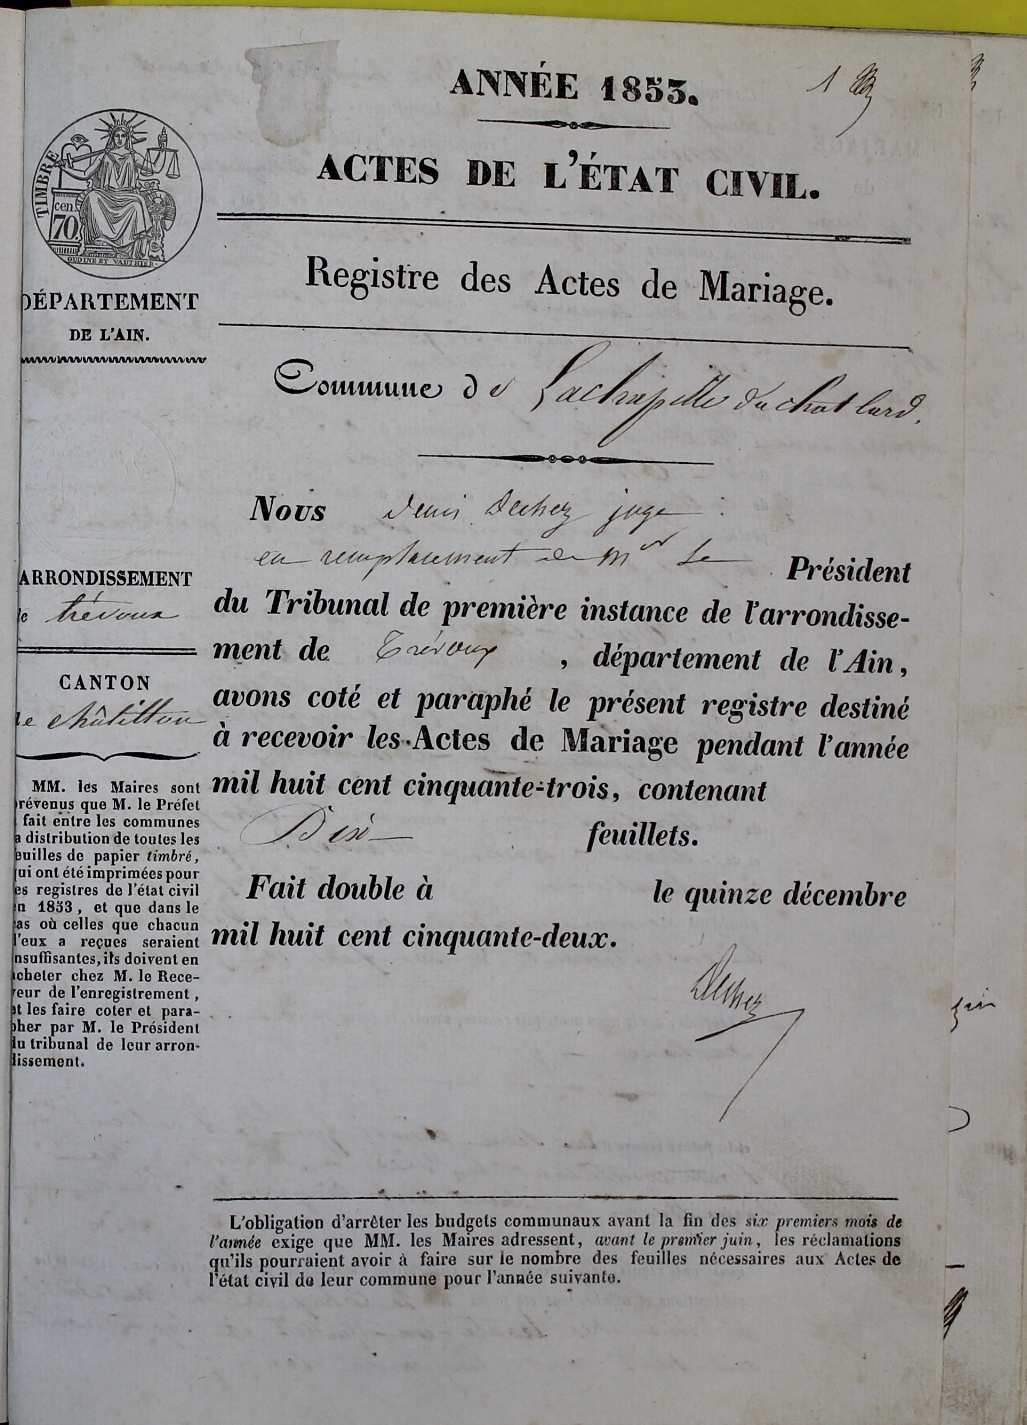 ANNÉE 1853.
1
ACTES DE L'ÉTAT CIVIL.
TIMBRE
cen
70
OUDINE ET VAUTHIER
DÉPARTEMENT
DE L'AIN.
Registre des Actes de Mariage.
Commune de Lachapelle du chatlard.
Nous denis Dechez juge
en remplacement de Mr le Président
du Tribunal de première instance de l'arrondisse-
ment de Trévoux, département de l'Ain,
avons coté et paraphé le présent registre destiné
à recevoir les Actes de Mariage pendant l'année
mil huit cent cinquante-trois, contenant
Dix feuillets.
Fait double à le quinze décembre
mil huit cent cinquante-deux.
Dechez
ARRONDISSEMENT
de trévoux
CANTON
de châtillon
MM. les Maires sont
prévenus que M. le Préfet
fait entre les communes
la distribution de toutes les
feuilles de papier timbré,
qui ont été imprimées pour
les registres de l'état civil
en 1853, et que dans le
cas où celles que chacun
d'eux a reçues seraient
insuffisantes, ils doivent en
acheter chez M. le Rece-
veur de l'enregistrement,
et les faire coter et para-
pher par M. le Président
du tribunal de leur arron-
dissement.
L'obligation d'arrêter les budgets communaux avant la fin des six premiers mois de
l'année exige que MM. les Maires adressent, avant le premier juin, les réclamations
qu'ils pourraient avoir à faire sur le nombre des feuilles nécessaires aux Actes de
l'état civil de leur commune pour l'année suivante.